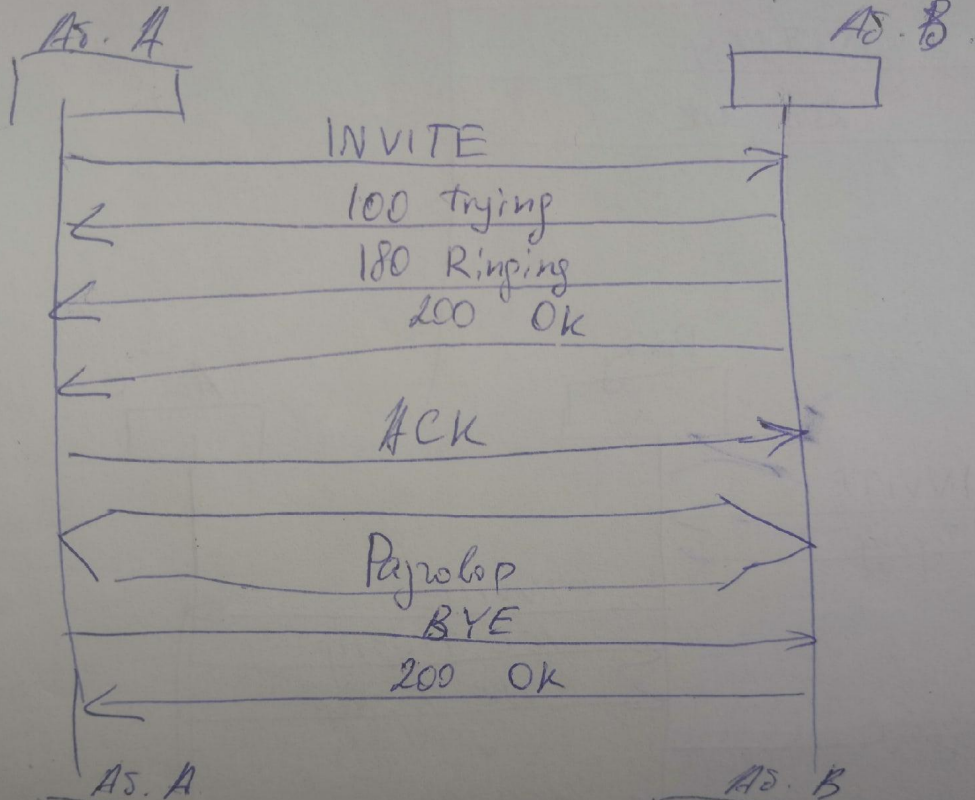 Аб. А Аб. В
INVITE
100 trying
180 Ringing
200 Ok
ACK
Разговор
BYE
200 Ok
Аб. А Аб. В